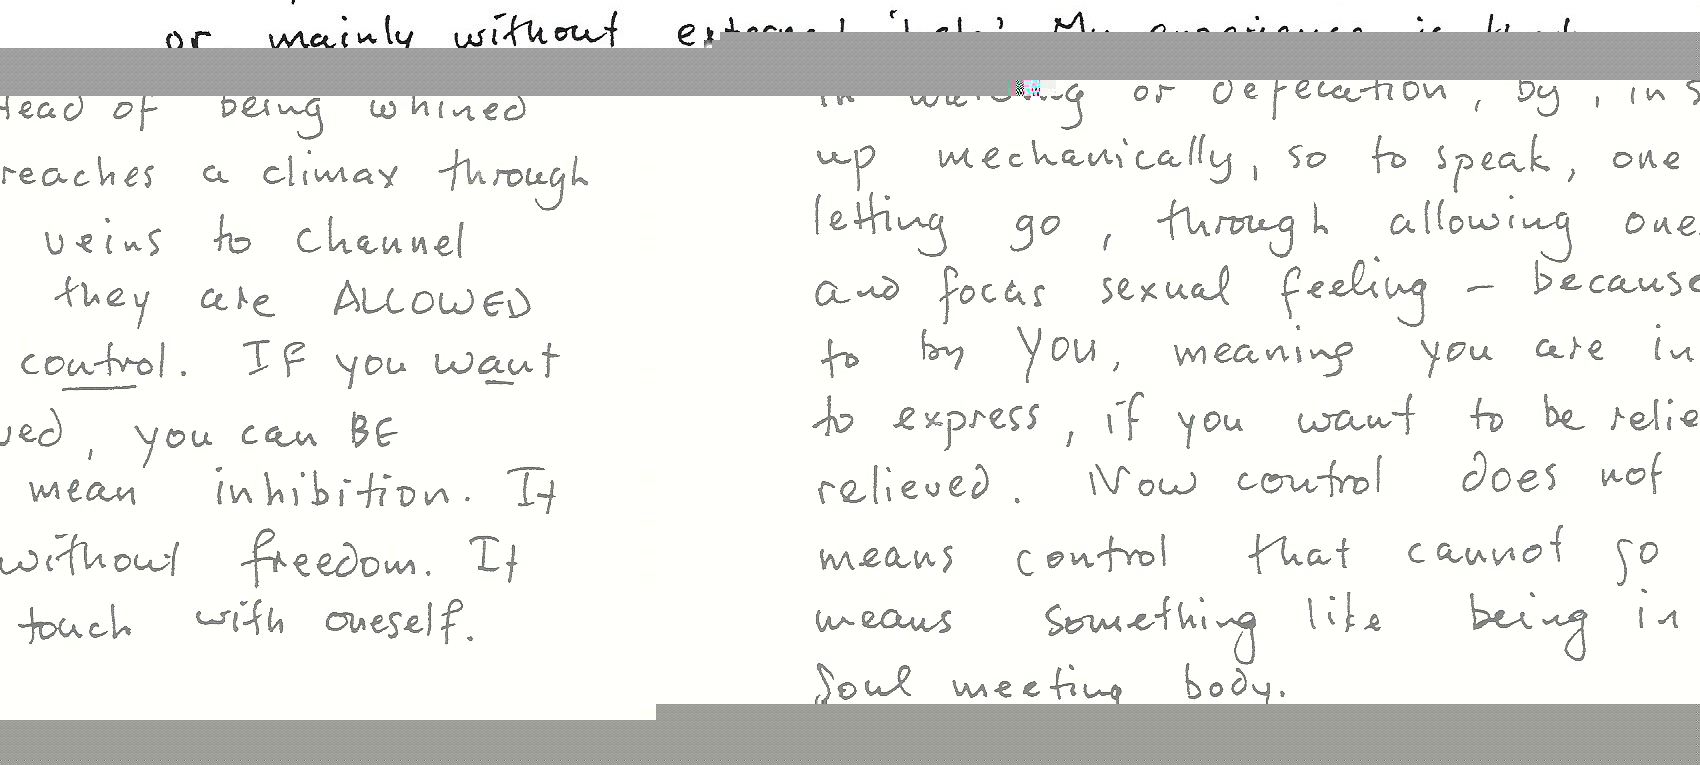 or mainly without external 'help'. My experience is
or defecation, by, instead of being whined
up mechanically, so to speak, one reaches a climax through
letting go, through allowing one veins to channel
and focus sexual feeling – because they are ALLOWED
to by YOU, meaning you are in control. IF you want
to express, if you want to be relieved, you can BE
relieved. Now control does not mean inhibition. It
means control that cannot go without freedom. It
means something like being in touch with oneself.
Soul meeting body.